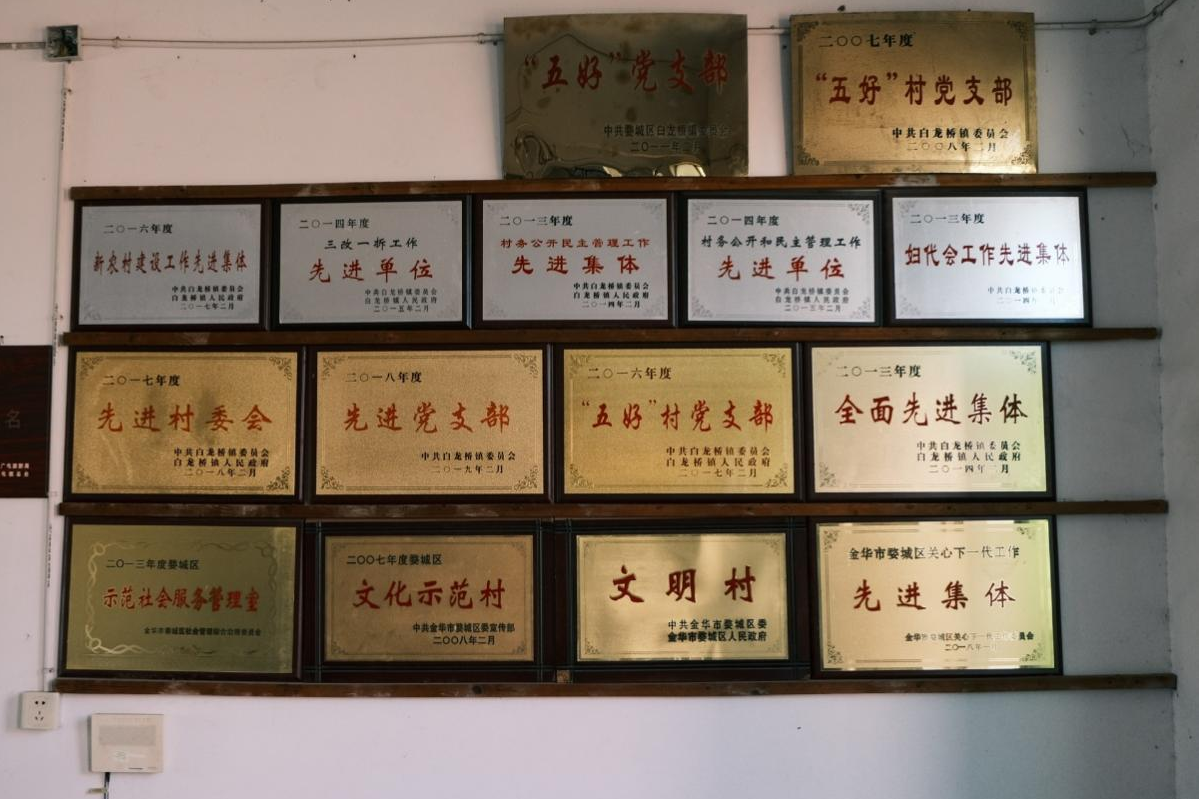 “五好”党支部
中共婺城区白龙桥镇委员会
二〇一一年二月
二〇〇七年度
“五好”村党支部
中共白龙桥镇委员会
二〇〇八年二月
二〇一六年度
新农村建设工作先进集体
中共白龙桥镇委员会
白龙桥镇人民政府
二〇一七年二月
二〇一四年度
三改一拆工作
先进单位
中共白龙桥镇委员会
白龙桥镇人民政府
二〇一五年二月
二〇一三年度
村务公开民主管理工作
先进集体
中共白龙桥镇委员会
白龙桥镇人民政府
二〇一四年二月
二〇一四年度
村务公开和民主管理工作
先进单位
中共白龙桥镇委员会
白龙桥镇人民政府
二〇一五年二月
二〇一三年度
妇代会工作先进集体
中共白龙桥镇委员会
白龙桥镇人民政府
二〇一四年二月
二〇一七年度
先进村委会
中共白龙桥镇委员会
白龙桥镇人民政府
二〇一八年二月
二〇一八年度
先进党支部
中共白龙桥镇委员会
二〇一九年二月
二〇一六年度
“五好”村党支部
中共白龙桥镇委员会
白龙桥镇人民政府
二〇一七年二月
二〇一三年度
全面先进集体
中共白龙桥镇委员会
白龙桥镇人民政府
二〇一四年二月
名
二〇一三年度婺城区
示范社会服务管理室
二〇〇七年度婺城区
文化示范村
中共金华市婺城区委宣传部
二〇〇八年二月
文明村
中共金华市婺城区委
金华市婺城区人民政府
金华市婺城区关心下一代工作
先进集体
金华市婺城区关心下一代工作委员会
二〇一八年一月